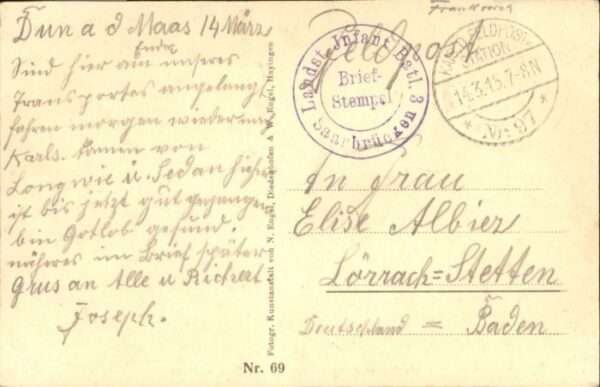 Dun a d Maas 14 März
Sind hier am Ende unseres
Transportes angelangt
fahren morgen wieder
Karls. kamen von
Longwie u. Sedan hieher
ist bis jetzt gut gegangen
bin Gotlob gesund.
näheres im Brief später
Grus an Alle u Richert
Joseph.
Frankreich
Feldpost
Landst. Infant. Batl. 3
Brief-
Stempel
Saarbrücken
KAIS. D. FELDPOST-
STATION
14.3.15. 7-8N
* No: 97 *
An Frau
Elise Albiez
Lörrach=Stetten
Deutschland = Baden
Fotogr. Kunstanstalt von N. Engel, Diedenhofen & W. Engel, Hayingen
Nr. 69